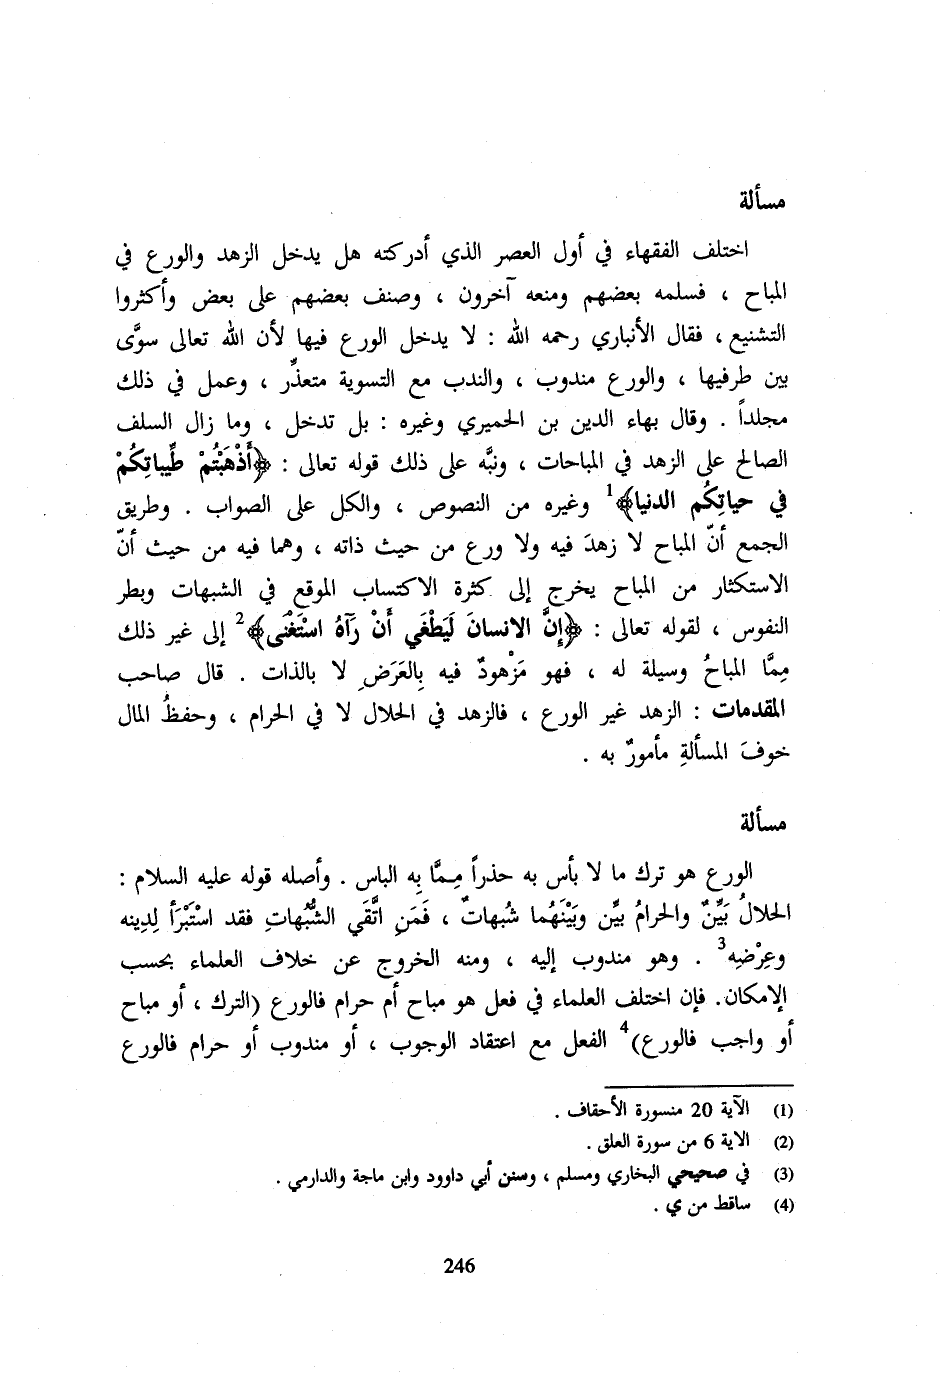 مسألة
اختلف الفقهاء في أول العصر الذي أدركته هل يدخل الزهد والورع في
المباح ، فسلمه بعضهم ومنعه آخرون ، وصنف بعضهم على بعض وأكثروا
التشنيع ، فقال الأنباري رحمه الله : لا يدخل الورع فيها لأن الله تعالى سوَّى
بين طرفيها ، والورع مندوب ، والندب مع التسوية متعذِّر ، وعمل في ذلك
مجلداً . وقال بهاء الدين بن الحميري وغيره : بل تدخل ، وما زال السلف
الصالح على الزهد في المباحات ، ونبَّه على ذلك قوله تعالى : ﴿أَذْهَبْتُمْ طيِّباتِكُمْ
في حياتِكُم الدنيا﴾1 وغيره من النصوص ، والكل على الصواب . وطريق
الجمع أنّ المباح لا زهدَ فيه ولا ورع من حيث ذاته ، وهما فيه من حيث أنّ
الاستكثار من المباح يخرج إلى كثرة الاكتساب الموقع في الشبهات وبطر
النفوس ، لقوله تعالى : ﴿إِنَّ الانسانَ لَيَطْغَي أَنْ رَآهُ اسْتَغْنَى﴾2 إلى غير ذلك
مِمَّا المباحُ وسيلة له ، فهو مَزْهودٌ فيه بِالعَرَضِ لا بالذات . قال صاحب
المقدمات : الزهد غير الورع ، فالزهد في الحلال لا في الحرام ، وحفظُ المال
خوفَ المسألةِ مأمورٌ به .
مسألة
الورع هو ترك ما لا بأس به حذراً مِمَّا بِه الباس . وأصله قوله عليه السلام :
الحلالُ بَيِّنٌ والحرامُ بيِّن وبَيْنَهُما شُبهاتٌ ، فَمَنِ اتَّقَي الشُّبُهاتِ فقد اسْتَبْرَأَ لِدِينه
وعِرْضِه3 . وهو مندوب إليه ، ومنه الخروج عن خلاف العلماء بحسب
الإمكان. فإن اختلف العلماء في فعل هو مباح أم حرام فالورع (الترك ، أو مباح
أو واجب فالورع)4 الفعل مع اعتقاد الوجوب ، أو مندوب أو حرام فالورع
(1) الآية 20 منسورة الأحقاف .
(2) الاية 6 من سورة العلق .
(3) في صحيحي البخاري ومسلم ، وسنن أبي داوود وابن ماجة والدارمي .
(4) ساقط من ي .
246